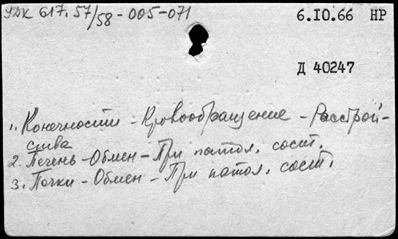 УДК 617.57/58-005-071
6.IO.66 НР
Д 40247
1. Конечности - Кровообращение - Расстрой-
ства
2. Печень - Обмен - При патол. сост.
3. Почки - Обмен - При патол. сост.